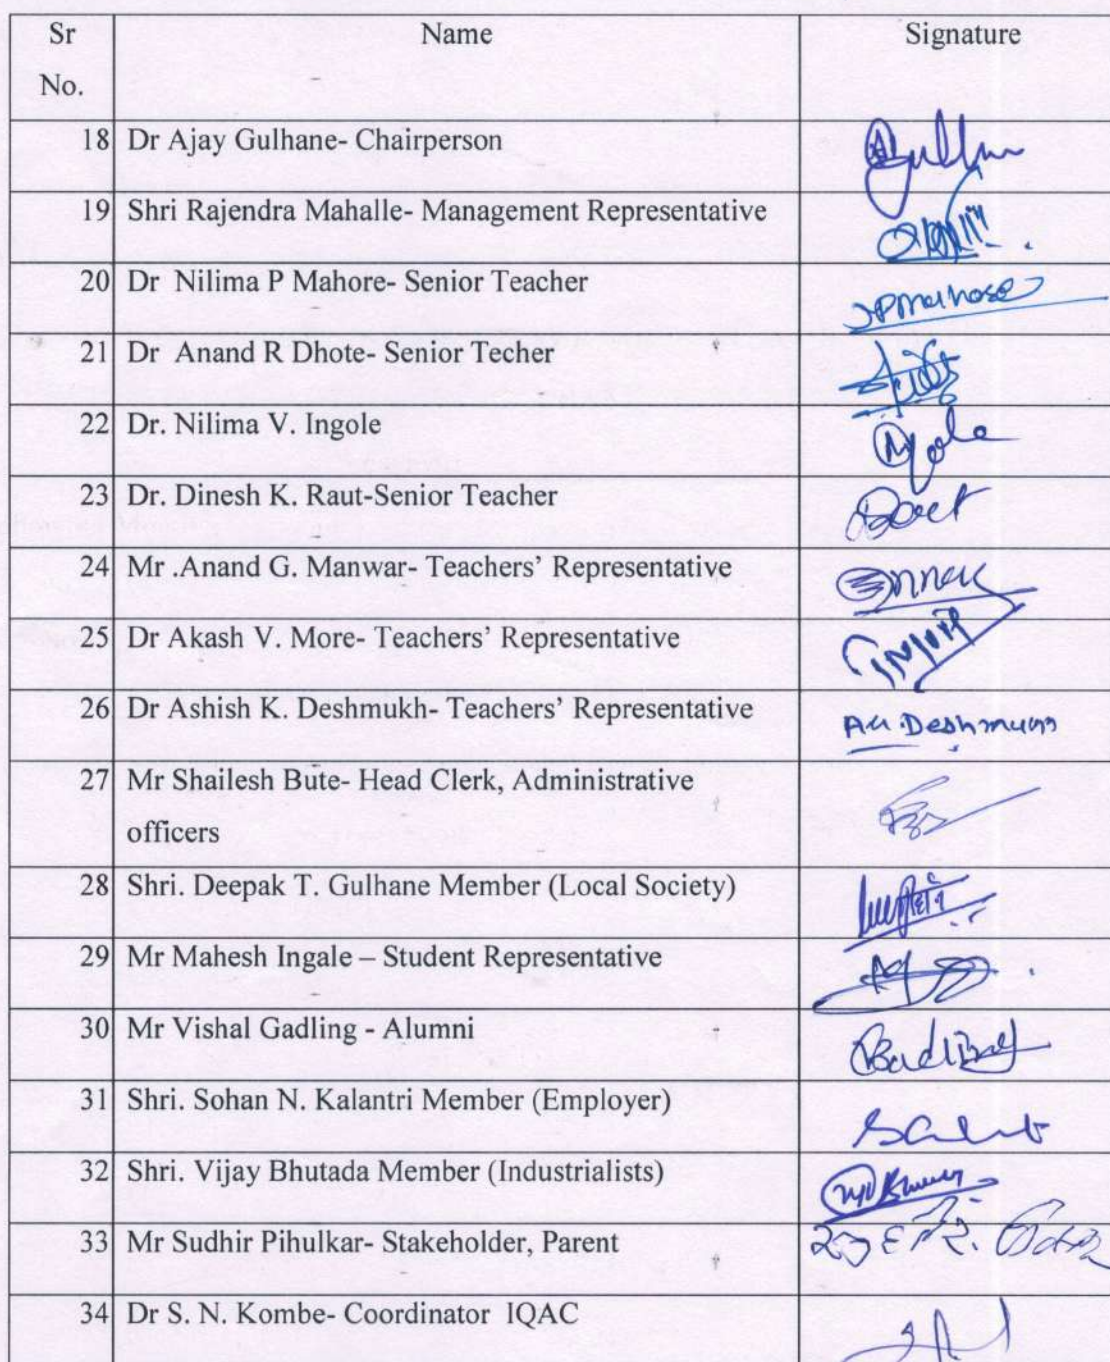 Sr No. Name Signature
18 Dr Ajay Gulhane- Chairperson
19 Shri Rajendra Mahalle- Management Representative
20 Dr Nilima P Mahore- Senior Teacher
21 Dr Anand R Dhote- Senior Techer
22 Dr. Nilima V. Ingole
23 Dr. Dinesh K. Raut-Senior Teacher
24 Mr .Anand G. Manwar- Teachers’ Representative
25 Dr Akash V. More- Teachers’ Representative
26 Dr Ashish K. Deshmukh- Teachers’ Representative
27 Mr Shailesh Bute- Head Clerk, Administrative
officers
28 Shri. Deepak T. Gulhane Member (Local Society)
29 Mr Mahesh Ingale – Student Representative
30 Mr Vishal Gadling - Alumni
31 Shri. Sohan N. Kalantri Member (Employer)
32 Shri. Vijay Bhutada Member (Industrialists)
33 Mr Sudhir Pihulkar- Stakeholder, Parent
34 Dr S. N. Kombe- Coordinator IQAC